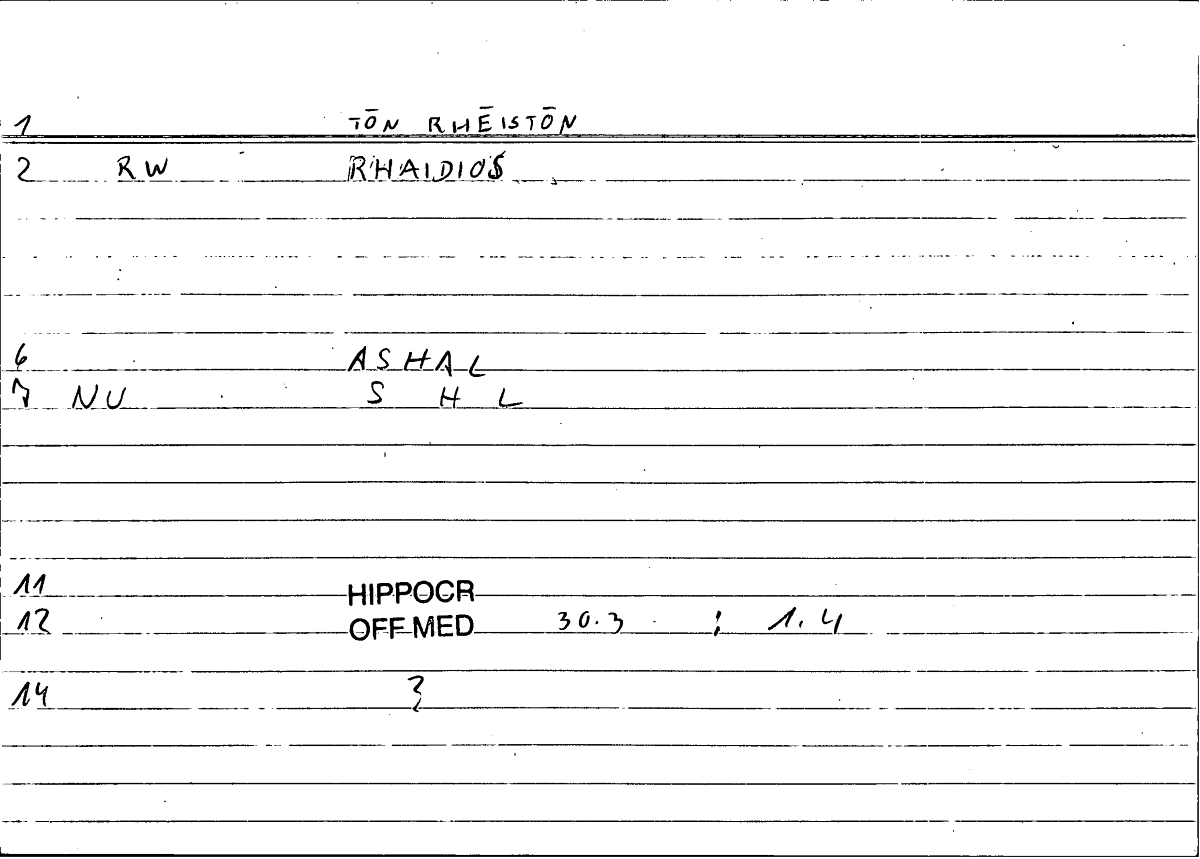 1 TŌN RHĒISTŌN
2 RW RHAIDIOS
6 ASHAL
7 NU S H L
11 HIPPOCR
12 OFF MED 30.3 ; 1.4
14 3